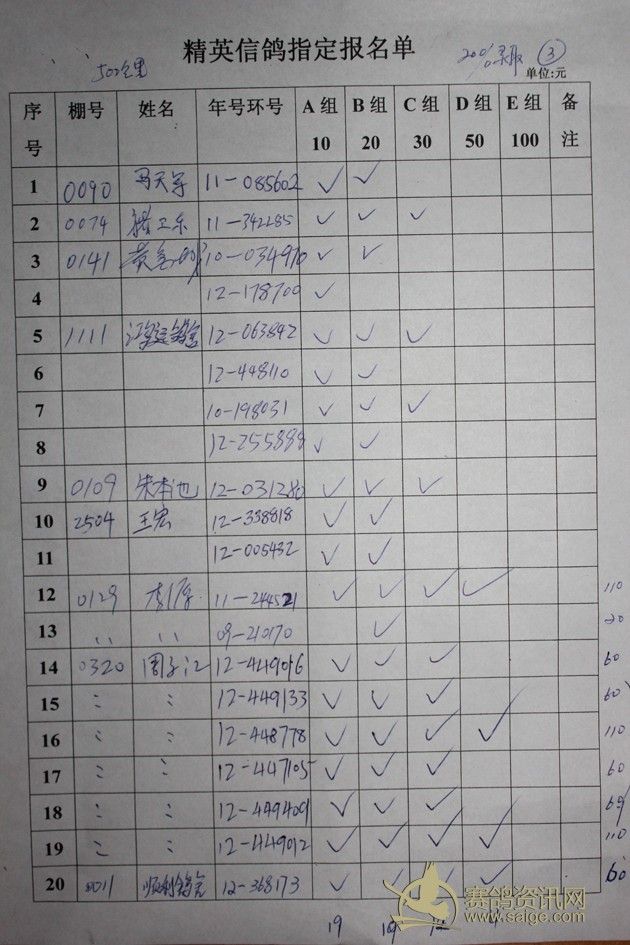 精英信鸽指定报名单
20% 录取 ③
单位:元
序号 棚号 姓名 年号环号 A组 10 B组 20 C组 30 D组 50 E组 100 备注
1 0090 11-085602 ✓ ✓
2 0074 11-342285 ✓ ✓ ✓
3 0141 10-034910 ✓ ✓
4 12-178700 ✓
5 1111 12-063842 ✓ ✓ ✓
6 12-448110 ✓ ✓
7 10-198031 ✓ ✓ ✓
8 12-255888 ✓ ✓
9 0109 朱本也 12-031280 ✓ ✓ ✓
10 2504 王宏 12-338818 ✓ ✓
11 12-005432 ✓ ✓
12 0129 11-244521 ✓ ✓ ✓ ✓ 110
13 〃 〃 09-210170 ✓ 20
14 0320 周子江 12-449016 ✓ ✓ ✓ 60
15 〃 〃 12-449133 ✓ ✓ ✓ 60
16 〃 〃 12-448778 ✓ ✓ ✓ ✓ 110
17 〃 〃 12-447105 ✓ ✓ ✓ 60
18 〃 〃 12-449409 ✓ ✓ ✓ 60
19 〃 〃 12-449012 ✓ ✓ ✓ ✓ 110
20 顺利鸽舍 12-368173 ✓ ✓ ✓ ✓ 60
19
赛鸽资讯网
www.saige.com